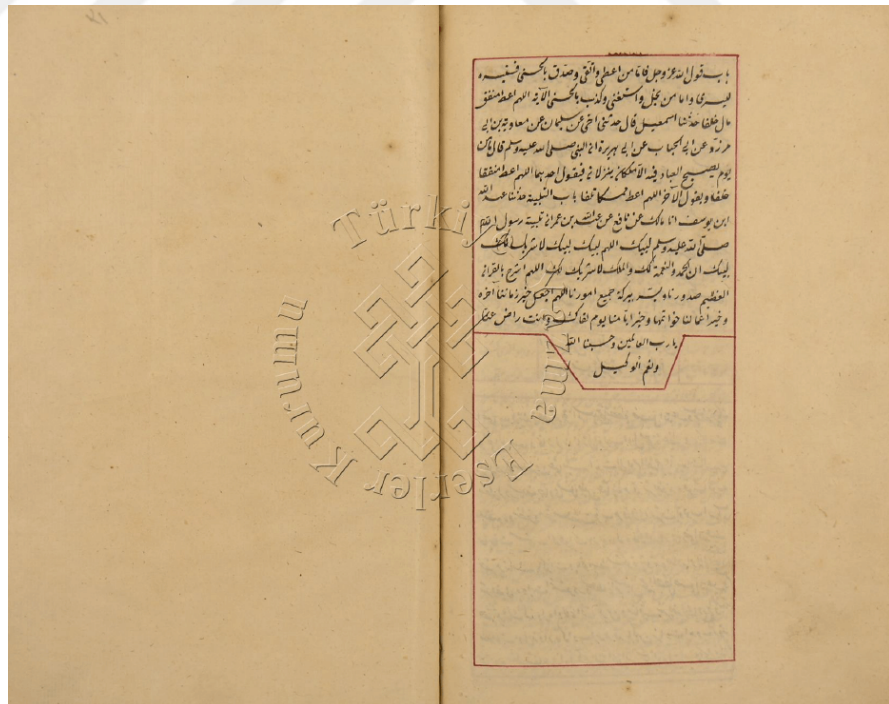 باب قول الله عز وجل فاما من اعطى واتقى وصدق بالحسنى فسنيسره
لليسرى واما من بخل واستغنى وكذب بالحسنى الآية اللهم اعط منفق
مال خلفا حدثنا اسمعيل قال حدثنى اخى عن سليمان عن معاوية بن ابى
مزرد عن ابى الحباب عن ابى هريرة ان النبى صلى الله عليه وسلم قال ما من
يوم يصبح العباد فيه الا ملكان ينزلان فيقول احدهما اللهم اعط منفقا
خلفا ويقول الآخر اللهم اعط ممسكا تلفا باب التلبية حدثنا عبد الله
ابن يوسف انا مالك عن نافع عن عبد الله بن عمر ان تلبية رسول الله
صلى الله عليه وسلم لبيك اللهم لبيك لبيك لا شريك لك
لبيك ان الحمد والنعمة لك والملك لا شريك لك اللهم اشرح بالقران
العظيم صدورنا ويسر ببركة جميع امورنا اللهم اجعل خير زماننا آخره
وخير اعمالنا خواتمها وخير ايامنا يوم لقائك وانت راض عنا
يا رب العالمين وحسبنا الله
ونعم الوكيل
Türkiye Yazma Eserler Kurumu